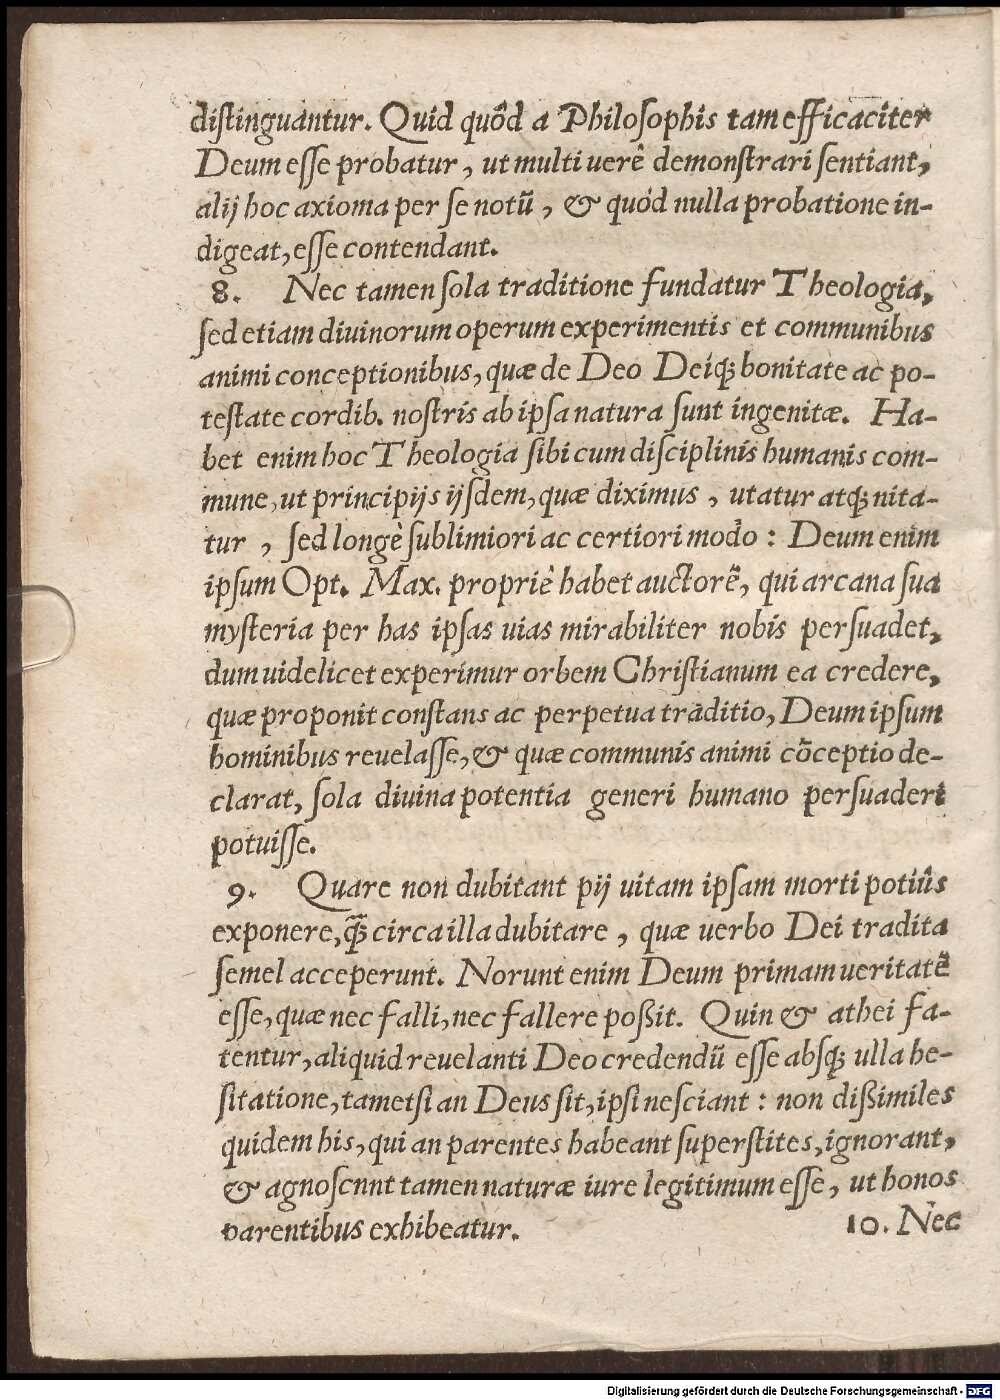 distinguántur. Quid quôd a Philosophis tam efficaciter
Deum esse probatur, ut multi uerè demonstrari sentiant,
alij hoc axioma per se notū, & quód nulla probatione in-
digeat, esse contendant.
8. Nec tamen sola traditione fundatur Theologia,
sed etiam diuinorum operum experimentis et communibus
animi conceptionibus, quæ de Deo Deíq; bonitate ac po-
testate cordib. nostris ab ipsa natura sunt ingenitæ. Ha-
bet enim hoc Theologia sibi cum disciplinis humanis com-
mune, ut principijs ijsdem, quæ diximus, utatur atq; nita-
tur, sed longè sublimiori ac certiori modo: Deum enim
ipsum Opt. Max. propriè habet auctorē, qui arcana sua
mysteria per has ipsas uias mirabiliter nobis persuadet,
dum uidelicet experimur orbem Christianum ea credere,
quæ proponit constans ac perpetua traditio, Deum ipsum
hominibus reuelasse, & quæ communis animi cōceptio de-
clarat, sola diuina potentia generi humano persuaderi
potuisse.
9. Quare non dubitant pij uitam ipsam morti potiùs
exponere, q̃ circa illa dubitare, quæ uerbo Dei tradita
semel acceperunt. Norunt enim Deum primam ueritatē
esse, quæ nec falli, nec fallere poßit. Quin & athei fa-
tentur, aliquid reuelanti Deo credendū esse absq; ulla he-
sitatione, tametsi an Deus sit, ipsi nesciant: non dißimiles
quidem his, qui an parentes habeant superstites, ignorant,
& agnoscnnt tamen naturæ iure legitimum esse, ut honos
parentibus exhibeatur. 10. Nec
Digitalisierung gefördert durch die Deutsche Forschungsgemeinschaft - DFG